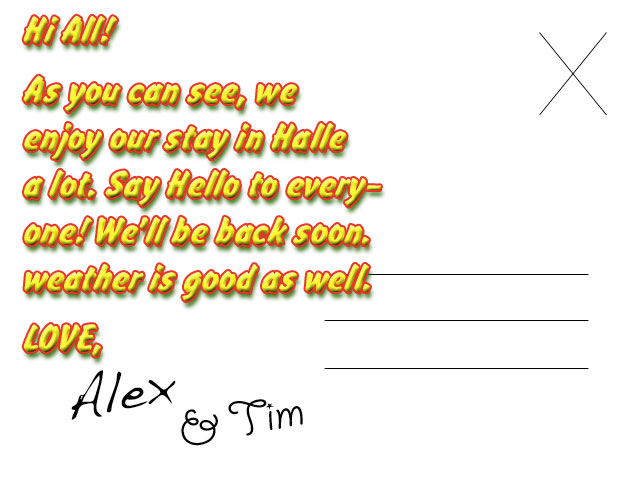 Hi All!
As you can see, we
enjoy our stay in Halle
a lot. Say Hello to every-
one! We'll be back soon.
weather is good as well.
LOVE,
Alex
& Tim